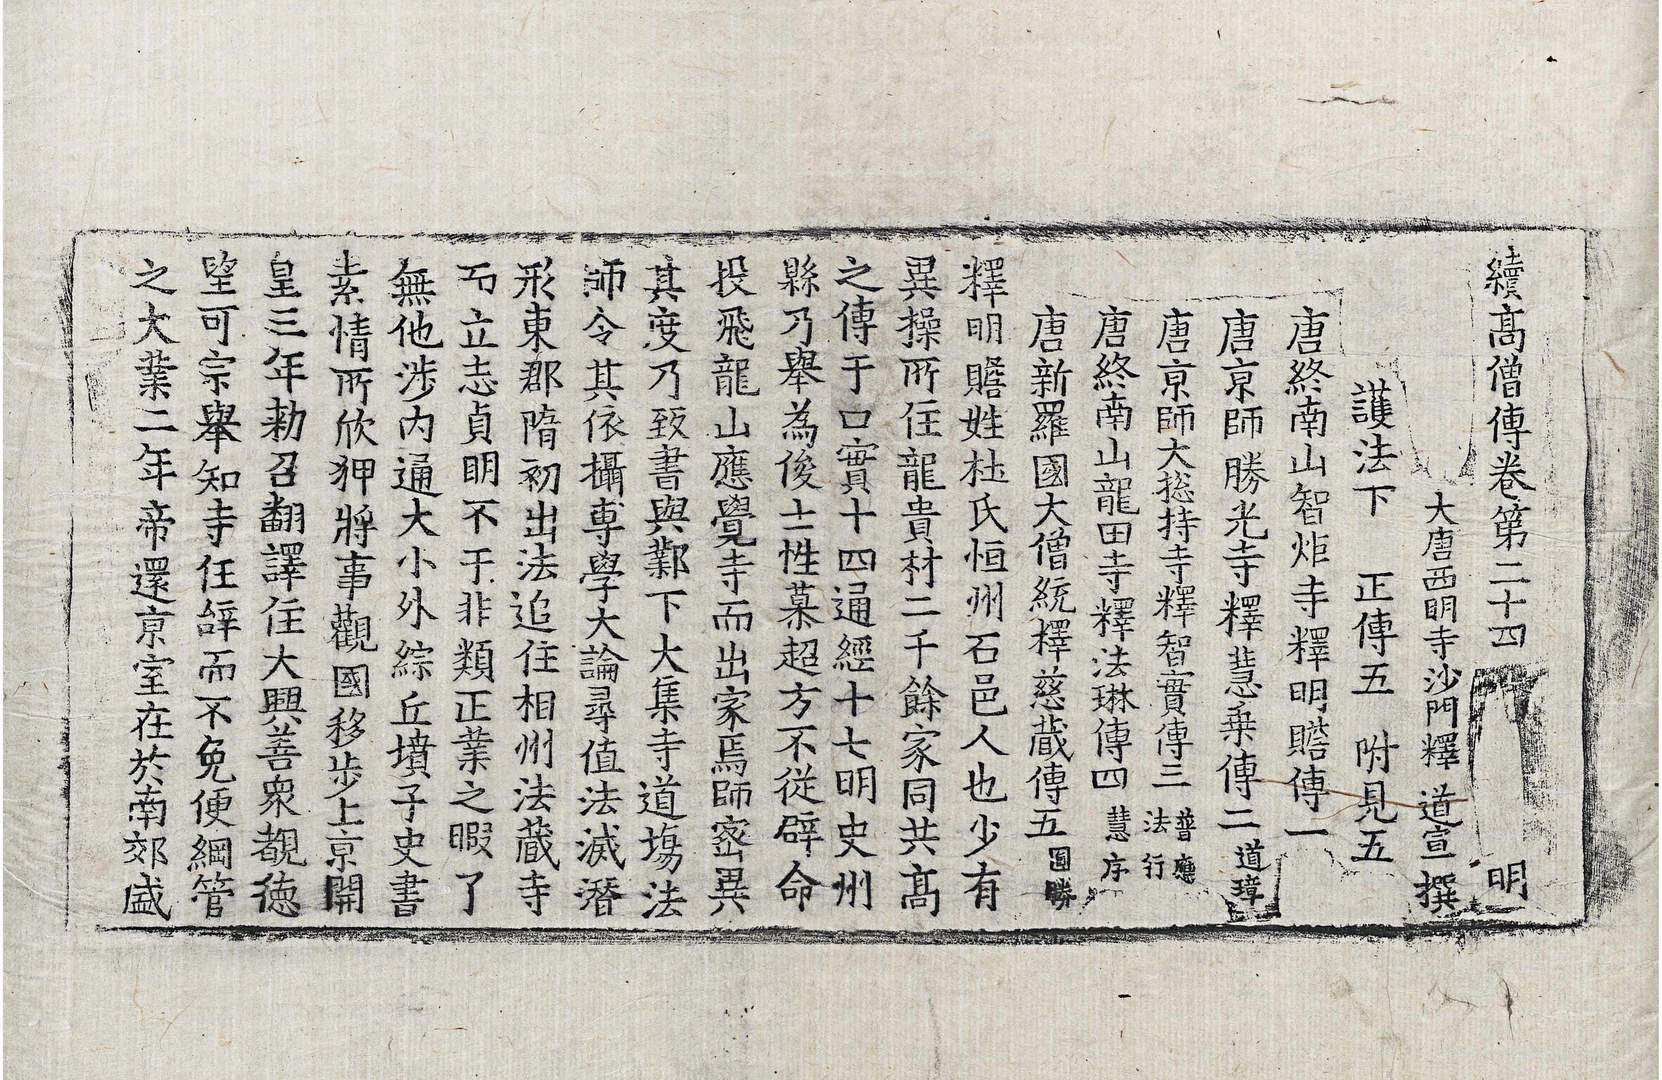 續高僧傳卷第二十四 明
大唐西明寺沙門釋 道宣 撰
護法下 正傳五 附見五
唐終南山智炬寺釋明贍傳一
唐京師勝光寺釋慧乗傳二 道璋
唐京師大捴持寺釋智實傳三 普應 法行
唐終南山龍田寺釋法琳傳四 慧序
唐新羅國大僧統釋慈藏傳五 圓勝
釋明贍姓杜氏恒州石邑人也少有
異操所住龍貴村二千餘家同共髙
之傳于口實十四通經十七明史州
縣乃舉為俊士性慕超方不從辟命
投飛龍山應覺寺而出家焉師密異
其度乃致書與鄴下大集寺道場法
師令其依攝專學大論尋值法滅潛
形東郡隋初出法追住相州法藏寺
石立志貞明不干非類正業之暇了
無他涉内通大小外綜丘墳子史書
素情所欣狎將事觀國移步上京開
皇三年勑召翻譯住大興善衆覩德
望可宗舉知寺任辭而不免便綱管
之大業二年帝還京室在於南郊盛